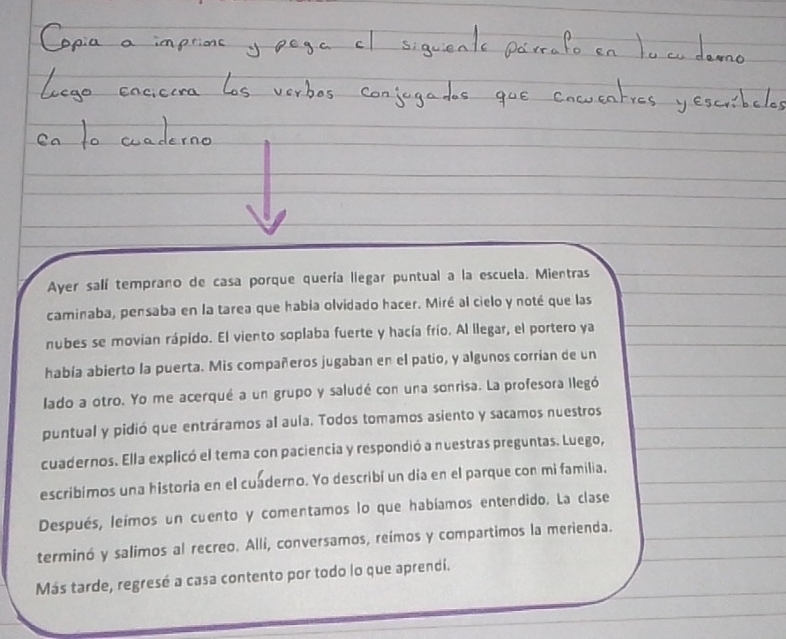 Copia a imprime y pega el siguiente párrafo en tu cuaderno
Luego encierra los verbos conjugados que encuentres y escríbelos
en to cuaderno
Ayer salí temprano de casa porque quería llegar puntual a la escuela. Mientras
caminaba, pensaba en la tarea que había olvidado hacer. Miré al cielo y noté que las
nubes se movían rápido. El viento soplaba fuerte y hacía frío. Al llegar, el portero ya
había abierto la puerta. Mis compañeros jugaban en el patio, y algunos corrían de un
lado a otro. Yo me acerqué a un grupo y saludé con una sonrisa. La profesora llegó
puntual y pidió que entráramos al aula. Todos tomamos asiento y sacamos nuestros
cuadernos. Ella explicó el tema con paciencia y respondió a nuestras preguntas. Luego,
escribimos una historia en el cuaderno. Yo describí un día en el parque con mi familia.
Después, leímos un cuento y comentamos lo que habíamos entendido. La clase
terminó y salimos al recreo. Allí, conversamos, reímos y compartimos la merienda.
Más tarde, regresé a casa contento por todo lo que aprendí.